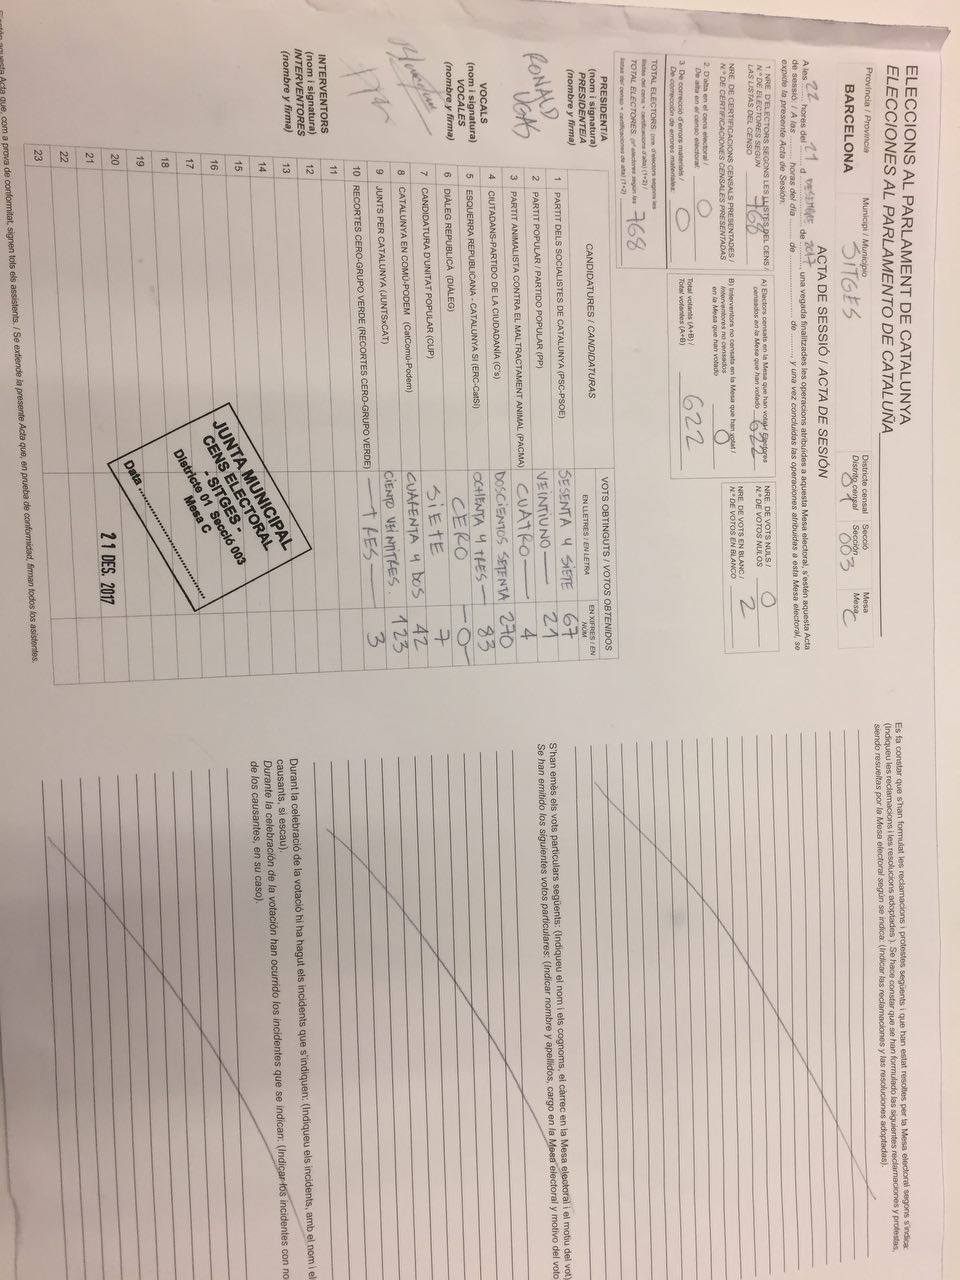 ELECCIONS AL PARLAMENT DE CATALUNYA
ELECCIONES AL PARLAMENTO DE CATALUÑA
Província / Provincia
BARCELONA
Municipi / Municipio
SITGES
Districte censal
Distrito censal
01
Secció
Sección
003
Mesa
Mesa
C
ACTA DE SESSIÓ / ACTA DE SESIÓN
A les 22 hores del 21 d DESEMBRE de 2017, una vegada finalitzades les operacions atribuïdes a aquesta Mesa electoral, s'estén aquesta Acta
de sessió. / A las ......... horas del día ......... de ......... de ........., y una vez concluidas las operaciones atribuidas a esta Mesa electoral, se
expide la presente Acta de Sesión.
1. NRE. D'ELECTORS SEGONS LES LLISTES DEL CENS /
N.º DE ELECTORES SEGÚN
LAS LISTAS DEL CENSO
768
NRE. DE CERTIFICACIONS CENSALS PRESENTADES /
N.º DE CERTIFICACIONES CENSALES PRESENTADAS
2. D'alta en el cens electoral /
De alta en el censo electoral:
0
3. De correcció d'errors materials /
De corrección de errores materiales:
0
TOTAL ELECTORS: (nre. d'electors segons les
llistes del cens + certificacions d'alta) (1+2) /
TOTAL ELECTORES: (nº electores según las
listas del censo + certificaciones de alta) (1+2)
768
A) Electors censats en la Mesa que han votat / Electores
censados en la Mesa que han votado
622
B) Interventors no censats en la Mesa que han votat /
Interventores no censados
en la Mesa que han votado
0
Total votants (A+B) /
Total votantes (A+B)
622
NRE. DE VOTS NULS /
N.º DE VOTOS NULOS
0
NRE. DE VOTS EN BLANC /
N.º DE VOTOS EN BLANCO
2
PRESIDENT/A
(nom i signatura)
PRESIDENTE/A
(nombre y firma)
RONALD
VOCALS
(nom i signatura)
VOCALES
(nombre y firma)
INTERVENTORS
(nom i signatura)
INTERVENTORES
(nombre y firma)
CANDIDATURES / CANDIDATURAS
VOTS OBTINGUTS / VOTOS OBTENIDOS
EN LLETRES / EN LETRA
EN XIFRES / EN NÚM.
1 PARTIT DELS SOCIALISTES DE CATALUNYA (PSC-PSOE) SESENTA Y SIETE 67
2 PARTIT POPULAR / PARTIDO POPULAR (PP) VEINTIUNO 21
3 PARTIT ANIMALISTA CONTRA EL MALTRACTAMENT ANIMAL (PACMA) CUATRO 4
4 CIUTADANS-PARTIDO DE LA CIUDADANÍA (C's) DOSCIENTOS SETENTA 270
5 ESQUERRA REPUBLICANA - CATALUNYA SÍ (ERC-CatSí) OCHENTA Y TRES 83
6 DIÀLEG REPUBLICÀ (DIÀLEG) CERO -0-
7 CANDIDATURA D'UNITAT POPULAR (CUP) SIETE 7
8 CATALUNYA EN COMÚ-PODEM (CatComú-Podem) CUARENTA Y DOS 42
9 JUNTS PER CATALUNYA (JUNTSxCAT) CIENTO VEINTITRES. 123
10 RECORTES CERO-GRUPO VERDE (RECORTES CERO-GRUPO VERDE) TRES 3
11
12
13
14
15
16
17
18
19
20
21
22
23
JUNTA MUNICIPAL
CENS ELECTORAL
- SITGES -
Districte 01 Secció 003
Mesa C
Data
21 DES. 2017
aquesta Acta que, com a prova de conformitat, signen tots els assistents. / Se extiende la presente Acta que, en prueba de conformidad, firman todos los asistentes.
Es fa constar que s'han formulat les reclamacions i protestes següents i que han estat resoltes per la Mesa electoral segons s'indica:
(Indiqueu les reclamacions i les resolucions adoptades ). Se hace constar que se han formulado las siguientes reclamaciones y protestas,
siendo resueltas por la Mesa electoral según se indica: (Indicar las reclamaciones y las resoluciones adoptadas).
S'han emès els vots particulars següents: (Indiqueu el nom i els cognoms, el càrrec en la Mesa electoral i el motiu del vot)
Se han emitido los siguientes votos particulares: (Indicar nombre y apellidos, cargo en la Mesa electoral y motivo del voto
Durant la celebració de la votació hi ha hagut els incidents que s'indiquen: (Indiqueu els incidents, amb el nom i el
causants, si escau).
Durante la celebración de la votación han ocurrido los incidentes que se indican: (Indicar los incidentes con no
de los causantes, en su caso).